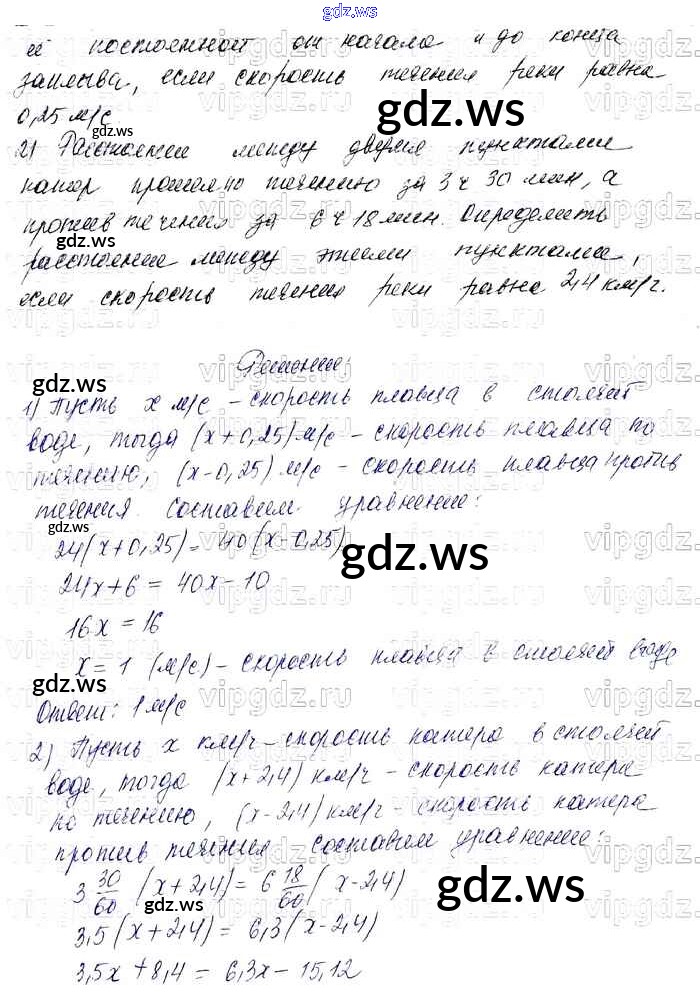 gdz.ws
её постоянной от начала и до конца
заплыва, если скорость течения реки равна
0,25 м/с
gdz.ws
2) Расстояние между двумя пунктами
катер прошел по течению за 3 ч 30 мин, а
против течения за 6 ч 18 мин. Определить
gdz.ws
расстояние между этими пунктами,
если скорость течения реки равна 2,4 км/ч.
Решение:
gdz.ws
1) Пусть x м/с - скорость пловца в стоячей
воде, тогда (x+0,25) м/с - скорость пловца по
течению, (x-0,25) м/с - скорость пловца против
течения. Составим уравнение:
gdz.ws
24(x+0,25)= 40(x-0,25)
gdz.ws
24x+6 = 40x-10
16x = 16
x = 1 (м/с) - скорость пловца в стоячей воде
gdz.ws
Ответ: 1 м/с
2) Пусть x км/ч - скорость катера в стоячей
воде, тогда (x+2,4) км/ч - скорость катера
по течению, (x-2,4) км/ч - скорость катера
против течения. Составим уравнение:
3 30/60 (x+2,4) = 6 18/60 (x-2,4)
gdz.ws
gdz.ws
3,5(x+2,4) = 6,3(x-2,4)
3,5x+8,4 = 6,3x-15,12